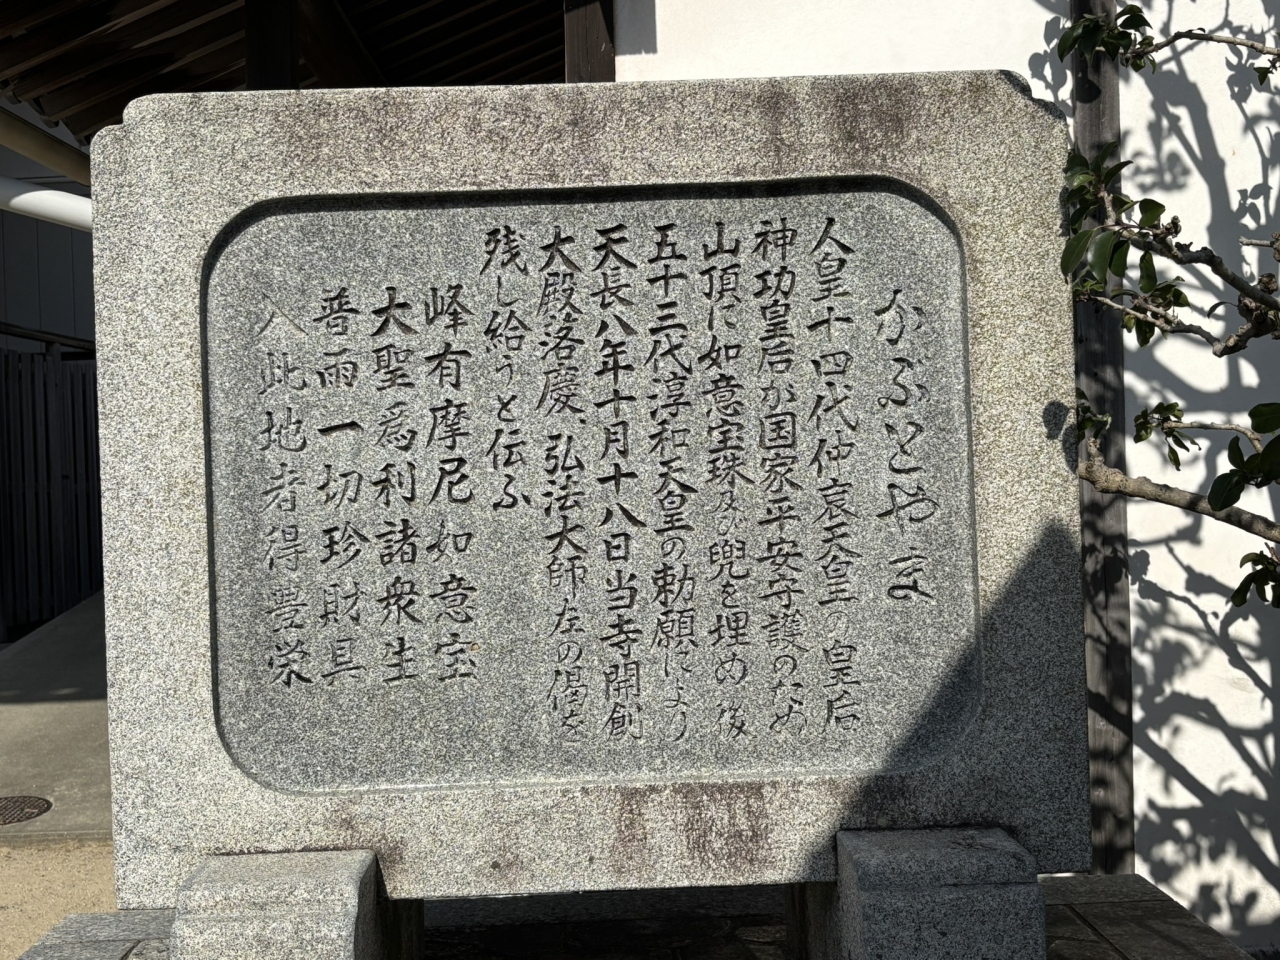 かぶとやま
人皇十四代仲哀天皇の皇后
神功皇后が国家平安守護のため
山頂に如意宝珠及び兜を埋め後
五十三代淳和天皇の勅願により
天長八年十月十八日当寺開創
大殿落慶、弘法大師左の偈を
残し給うと伝ふ
峰有摩尼如意宝
大聖為利諸衆生
普雨一切珍財具
入此地者得豊栄